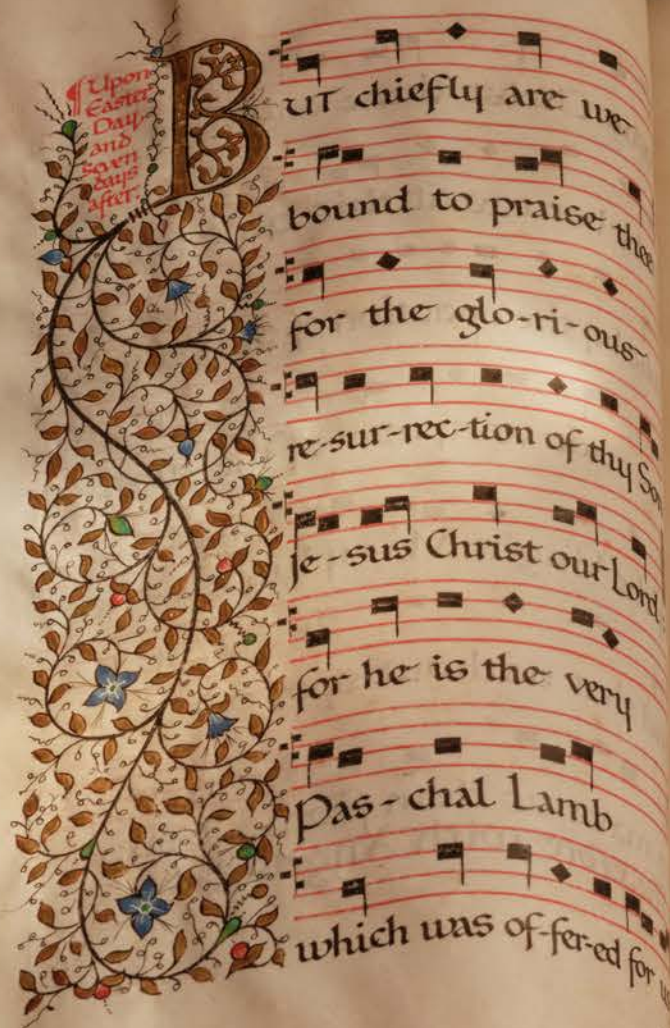 ¶ Upon
Easter
Day,
and
seven
days
after.
BUT chiefly are we
bound to praise thee
for the glo-ri-ous
re-sur-rec-tion of thy So
Je-sus Christ our Lord
for he is the very
Pas-chal Lamb
which was of-fer-ed for